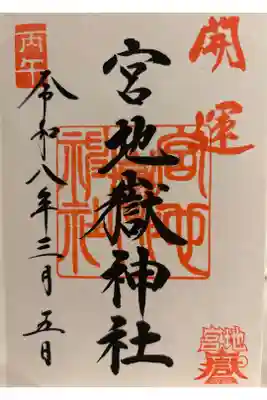 開運
宮地嶽神社
宮地嶽神社
丙午
令和八年三月五日
宮地嶽